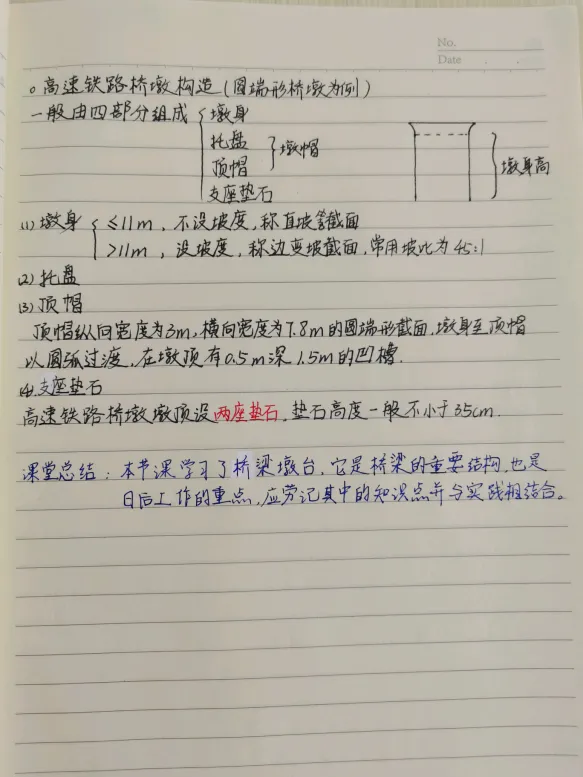 No.
Date . .
。高速铁路桥墩构造（圆端形桥墩为例）
一般由四部分组成 { 墩身
托盘
顶帽 } 墩帽
支座垫石
墩身高
(1) 墩身 { ≤11m，不设坡度，称直坡截面
>11m，设坡度，称边变坡截面，常用坡比为45:1
(2) 托盘
(3) 顶帽
顶帽纵向宽度为3m，横向宽度为7.8m的圆端形截面，墩身至顶帽
以圆弧过渡，在墩顶有0.5m深1.5m的凹槽.
(4) 支座垫石
高速铁路桥墩墩顶设两座垫石，垫石高度一般不小于35cm.
课堂总结：本节课学习了桥梁墩台，它是桥梁的重要结构，也是
日后工作的重点，应劳记其中的知识点并与实践相结合。